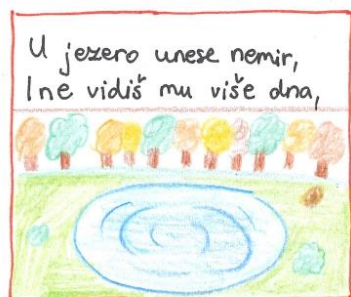 U jezero unese nemir,
I ne vidiš mu više dna,